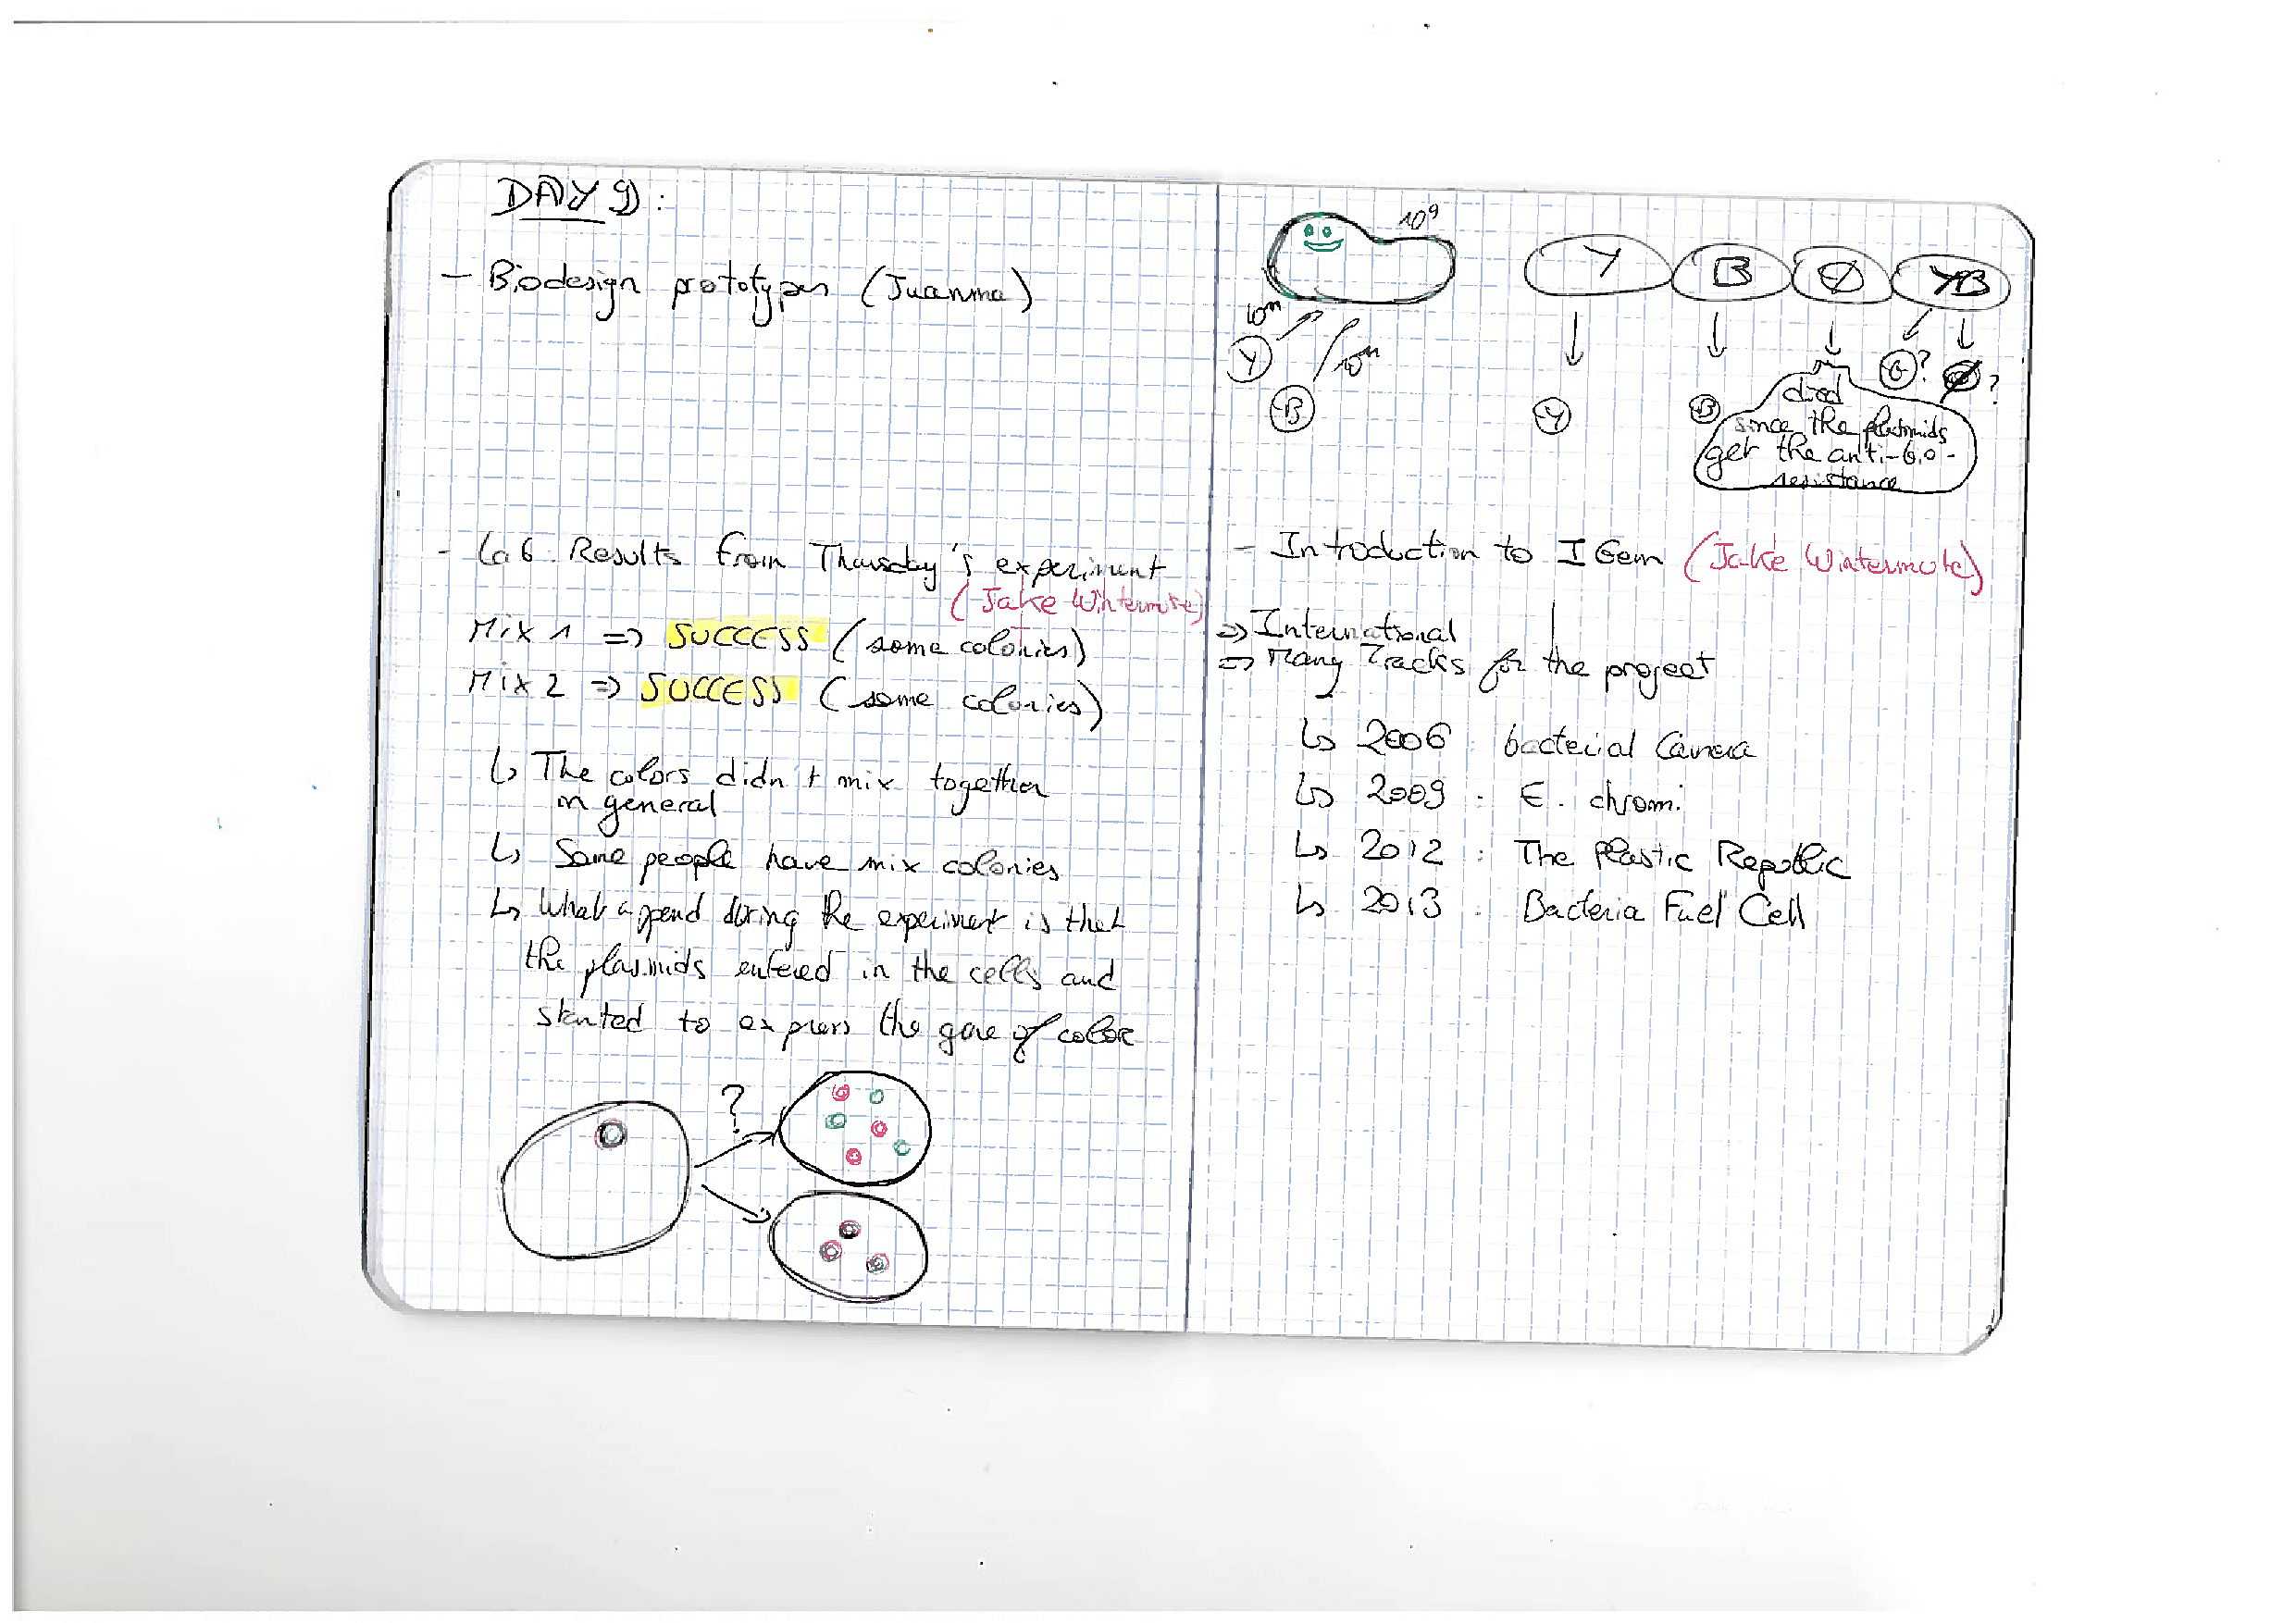 DAY 9:
- Biodesign prototypes (Juanma)
- Lab. Results from Thursday's experiment
(Jake Wintermute)
Mix 1 => SUCCESS (some colonies)
Mix 2 => SUCCESS (some colonies)
↳ The colors didn't mix together
in general
↳ Some people have mix colonies
↳ What append during the experiment is that
the plasmids entered in the cells and
started to express the gene of color
?
10⁹
Y B Ø YB
Y
B
Y
B
G? Ø?
died
since the plasmids
get the anti-bio-
resistance
- Introduction to IGem (Jake Wintermute)
=> International
=> Many Tracks for the project
↳ 2006 : bacterial Camera
↳ 2009 : E. chromi
↳ 2012 : The Plastic Republic
↳ 2013 : Bacteria Fuel Cell